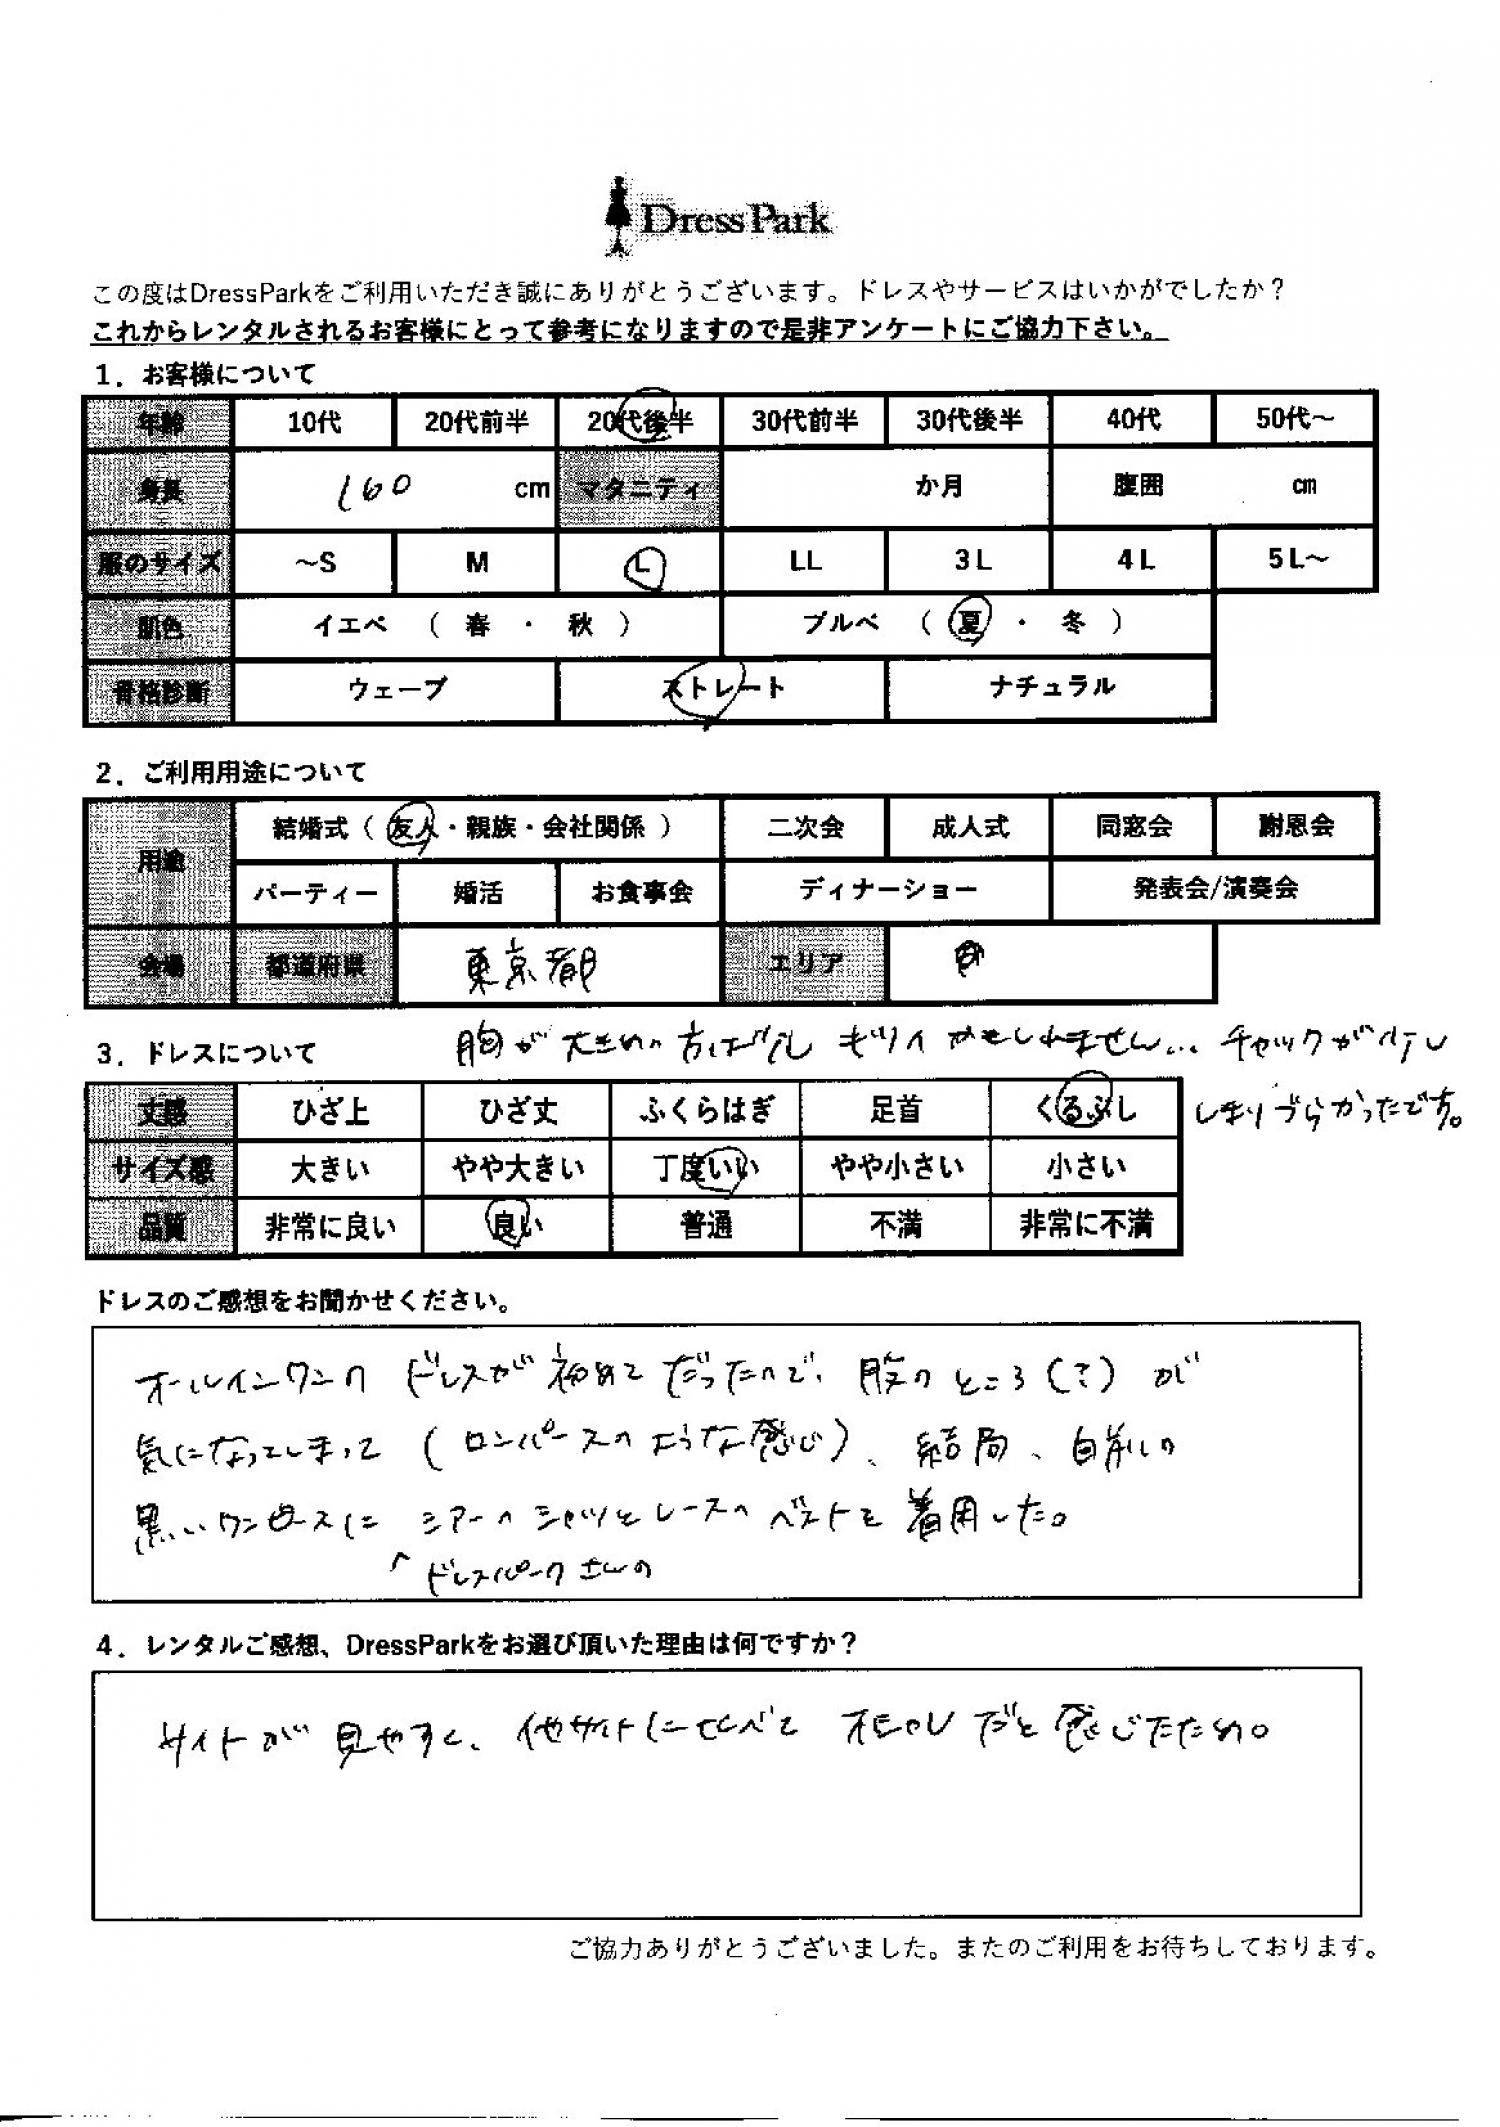 DressPark
この度はDressParkをご利用いただき誠にありがとうございます。ドレスやサービスはいかがでしたか？
これからレンタルされるお客様にとって参考になりますので是非アンケートにご協力下さい。
1．お客様について
年齢 10代 20代前半 20代後半 30代前半 30代後半 40代 50代〜
身長 160 cm マタニティ か月 腹囲 cm
服のサイズ 〜S M L LL 3L 4L 5L〜
肌色 イエベ （ 春 ・ 秋 ） ブルベ （ 夏 ・ 冬 ）
骨格診断 ウェーブ ストレート ナチュラル
2．ご利用用途について
用途 結婚式（ 友人・親族・会社関係 ） 二次会 成人式 同窓会 謝恩会
パーティー 婚活 お食事会 ディナーショー 発表会/演奏会
会場 都道府県 東京都 エリア
3．ドレスについて
胸が大きめの方は少しキツイかもしれません… チャックが少し
しまりづらかったです。
丈感 ひざ上 ひざ丈 ふくらはぎ 足首 くるぶし
サイズ感 大きい やや大きい 丁度いい やや小さい 小さい
品質 非常に良い 良い 普通 不満 非常に不満
ドレスのご感想をお聞かせください。
オールインワンのドレスが初めてだったので、股のところ（？）が
気になってしまって（ロンパースのような感じ）、結局、自前の
黒いワンピースに シアーのシャツとレースのベストを着用した。
ドレスパークさんの
4．レンタルご感想、DressParkをお選び頂いた理由は何ですか？
サイトが見やすく、他サイトに比べてオシャレだと感じたため。
ご協力ありがとうございました。またのご利用をお待ちしております。